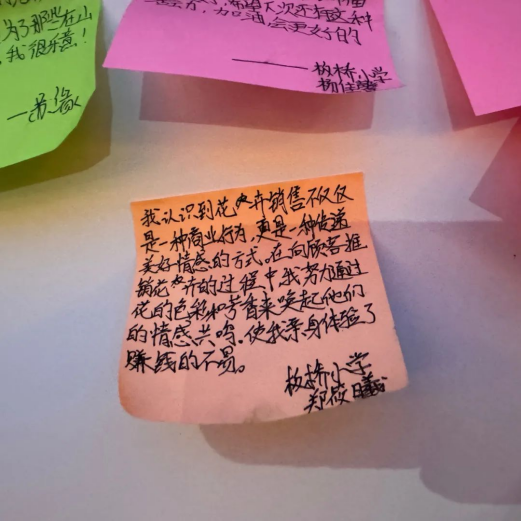 为了那些在山
我很乐意！
加油会更好的
——板桥小学
我认识到花卉销售不仅仅
是一种商业行为，更是一种传递
美好情感的方式。在向顾客推
销花卉的过程中我努力通过
花的色彩和芳香来唤起他们
的情感共鸣。使我亲身体验了
赚钱的不易。
板桥小学
郑筱曦